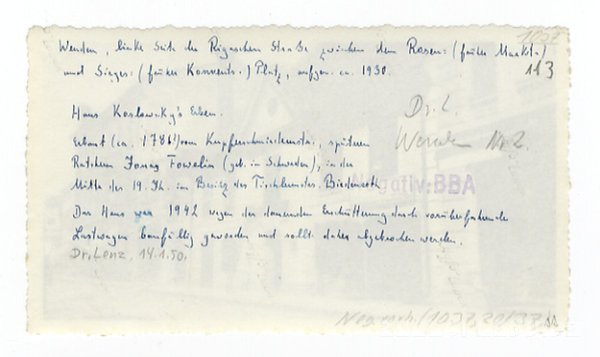 1037
113
Wenden, linke Seite der Rigaschen Straße zwischen dem Rosen- (früher Markt-)
und Sieges- (früher Konvents-) Platz, aufgen. ca. 1930.
Haus Koslowsky's Erben.
Erbaut (ca. 178 vom Kupferschmiedemstr., späteren
Ratsherrn Jonas Fowelin (geb. in Schweden), in der
Mitte des 19. Jh. im Besitz des Tischlermstrs.
Das Haus war 1942 wegen der dauernden Erschütterung durch vorüberfahrende
Lastwagen baufällig geworden und sollte daher abgebrochen werden.
Dr. Lenz, 14.1.50.
Dr. L.
Wenden Nr. 2.
Negativ: BBA
Neg.